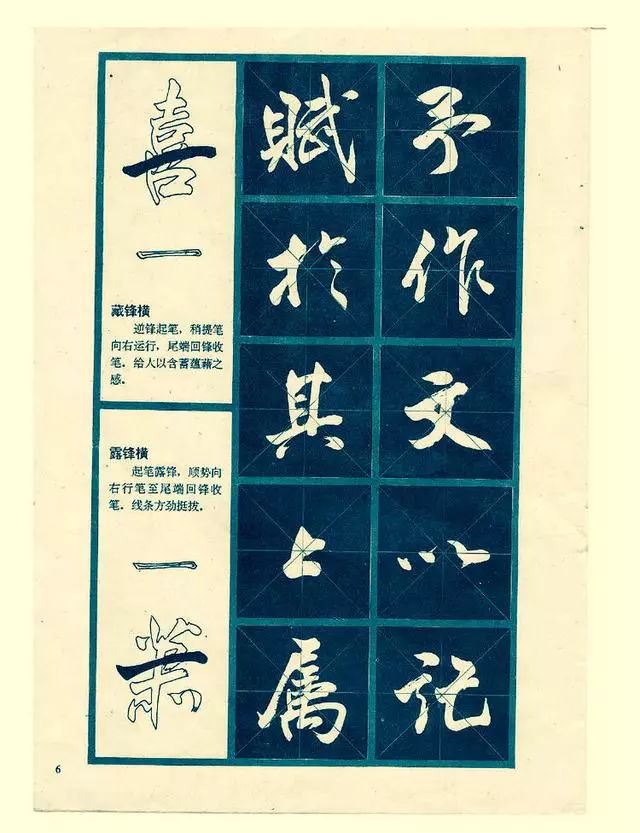 喜
一
藏锋横
逆锋起笔，稍提笔
向右运行，尾端回锋收
笔，给人以含蓄蕴藉之
感。
露锋横
起笔露锋，顺势向
右行笔至尾端回锋收
笔，线条方劲挺拔。
一
賦於其上属
予作文以记
6